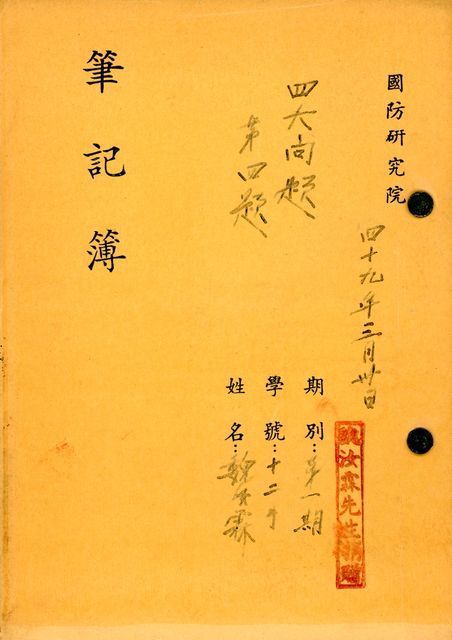 國防研究院
四十九年三月卅日
四大問題
第四題
筆記簿
期別：第一期
學號：十二號
姓名：魏汝霖
魏汝霖先生捐贈